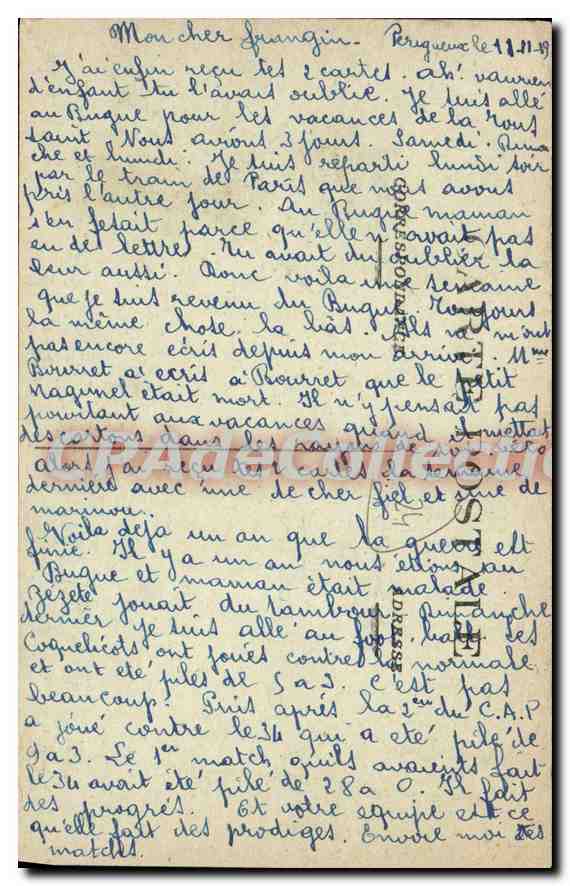 Mon cher frangin. Perigueux le 11.11.19
J'ai enfin reçu tes 2 cartes. ah! vaurien
d'enfant tu l'avais oublié. Je suis allé
au Bugue pour les vacances de la Tous
saint. Nous avions 3 jours. Samedi.
che et lundi. Je suis reparti lundi soir
par le train de Paris que nous avons
pris l'autre jour. Au Bugue maman
s'en fesait parce qu'elle n'avait pas
eu de lettre. Tu avait du oublier la
leur aussi. Donc voila une semaine
que je suis revenu du Bugue. Toujours
la même chose la bas. Ils m'ont
pas encore écris depuis mon arrivée. Mme
Bourret a écris a Bourret que le petit
Magimel était mort. Il n'y pensait pas
pourtant aux vacances quand il mettait
des cartons dans les
alors j'ai reçu tes 2 cartes la semaine
dernière avec une de cher fiel et une de
marinou.
Voila deja un an que la guerre est
finie. Il y a un an nous étions au
Bugue et maman était malade
Zezete jouait du tambour. Dimanche
dernier je suis allé au foot ball les
Coquelicots ont joués contre la normale
et ont été pilés de 5 a 3. C'est pas
beaucoup. Puis après la 2eme du C.A.P
a joué contre le 34 qui a été pilé de
9 a 3. Le 1er match quils avaient fait
le 34 avait été pilé de 28 a 0. Il fait
des progrès. Et votre equipe est ce
qu'elle fait des prodiges. Envoie moi tes
matches.
CARTE POSTALE
CORRESPONDANCE
ADRESSE
24
CPADeCollection